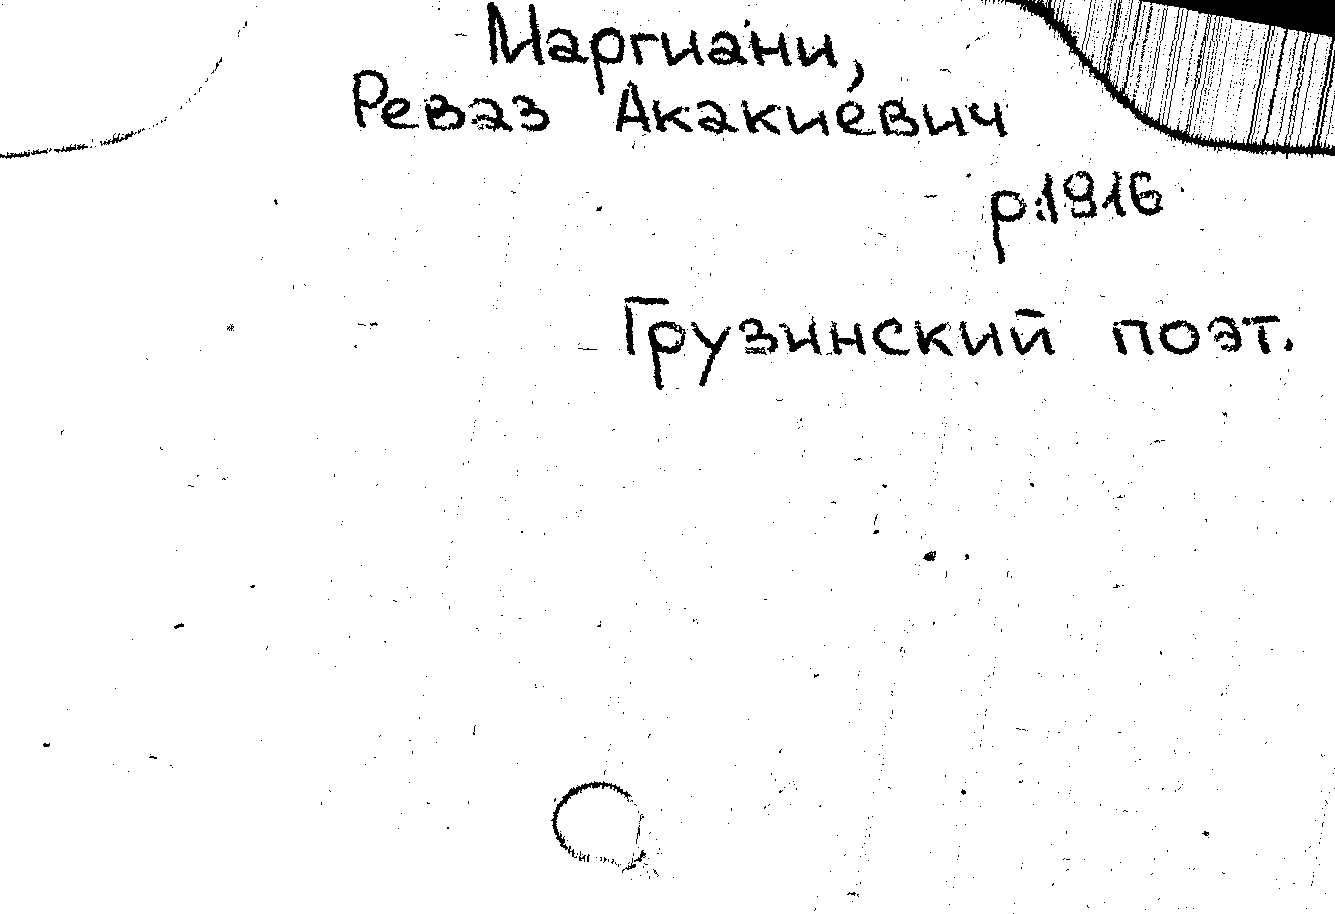 Маргиани,
Реваз Акакиевич
р.1916
Грузинский поэт.